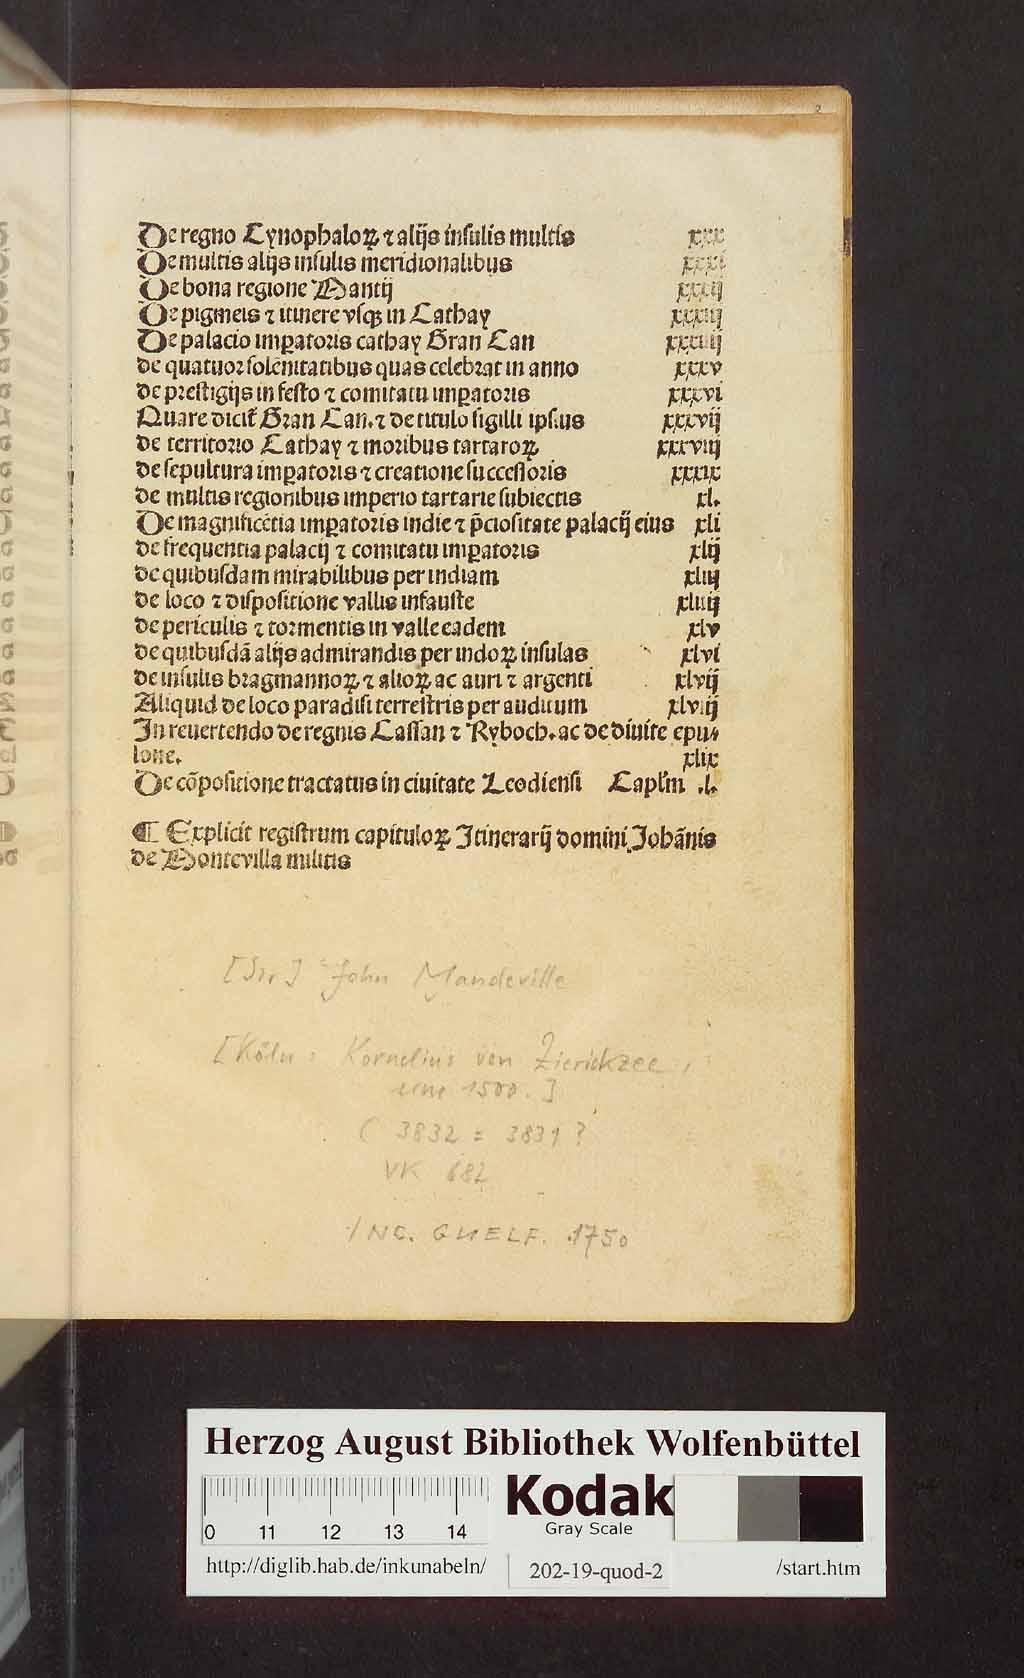 2
De regno Cynophaloꝝ ⁊ alijs insulis multis xxx
De multis alijs insulis meridionalibus xxxi
De bona regione Mantij xxxij
De pigmeis ⁊ itinere vsqꝫ in Cathay xxxiij
De palacio imꝑatoris cathay Gran Can xxxiiij
de quatuor solēnitatibus quas celebrat in anno xxxv
de prestigijs in festo ⁊ comitatu imꝑatoris xxxvi
Quare dicit᷑ Gran Can. ⁊ de titulo sigilli ipsius xxxvij
de territorio Cathay ⁊ moribus tartaroꝝ xxxviij
de sepultura imꝑatoris ⁊ creatione successoris xxxix
de multis regionibus imperio tartarie subiectis xl.
De magnificētia imꝑatoris indie ⁊ p̄ciositate palacij eius xli
de frequentia palacij ⁊ comitatu imꝑatoris xlij
de quibusdam mirabilibus per indiam xliij
de loco ⁊ dispositione vallis infauste xliiij
de periculis ⁊ tormentis in valle eadem xlv
de quibusdā alijs admirandis per indoꝝ insulas xlvi
de insulis bragmannoꝝ ⁊ alioꝝ ac auri ⁊ argenti xlvij
Aliquid de loco paradisi terrestris per auditum xlviij
In reuertendo de regnis Cassan ⁊ Ryboch. ac de diuite epu⸗
lone. xlix
De cōpositione tractatus in ciuitate Leodiensi Capl'm .l.
¶ Explicit registrum capituloꝝ Itinerarij domini Johānis
de Montevilla militis
[Sir] John Mandeville
[Köln: Kornelius von Zierickzee,
um 1500.]
( 3832 = 3831 ?
VK 682
INC. GUELF. 1750
Herzog August Bibliothek Wolfenbüttel
0 11 12 13 14
Kodak
Gray Scale
http://diglib.hab.de/inkunabeln/ 202-19-quod-2 /start.htm